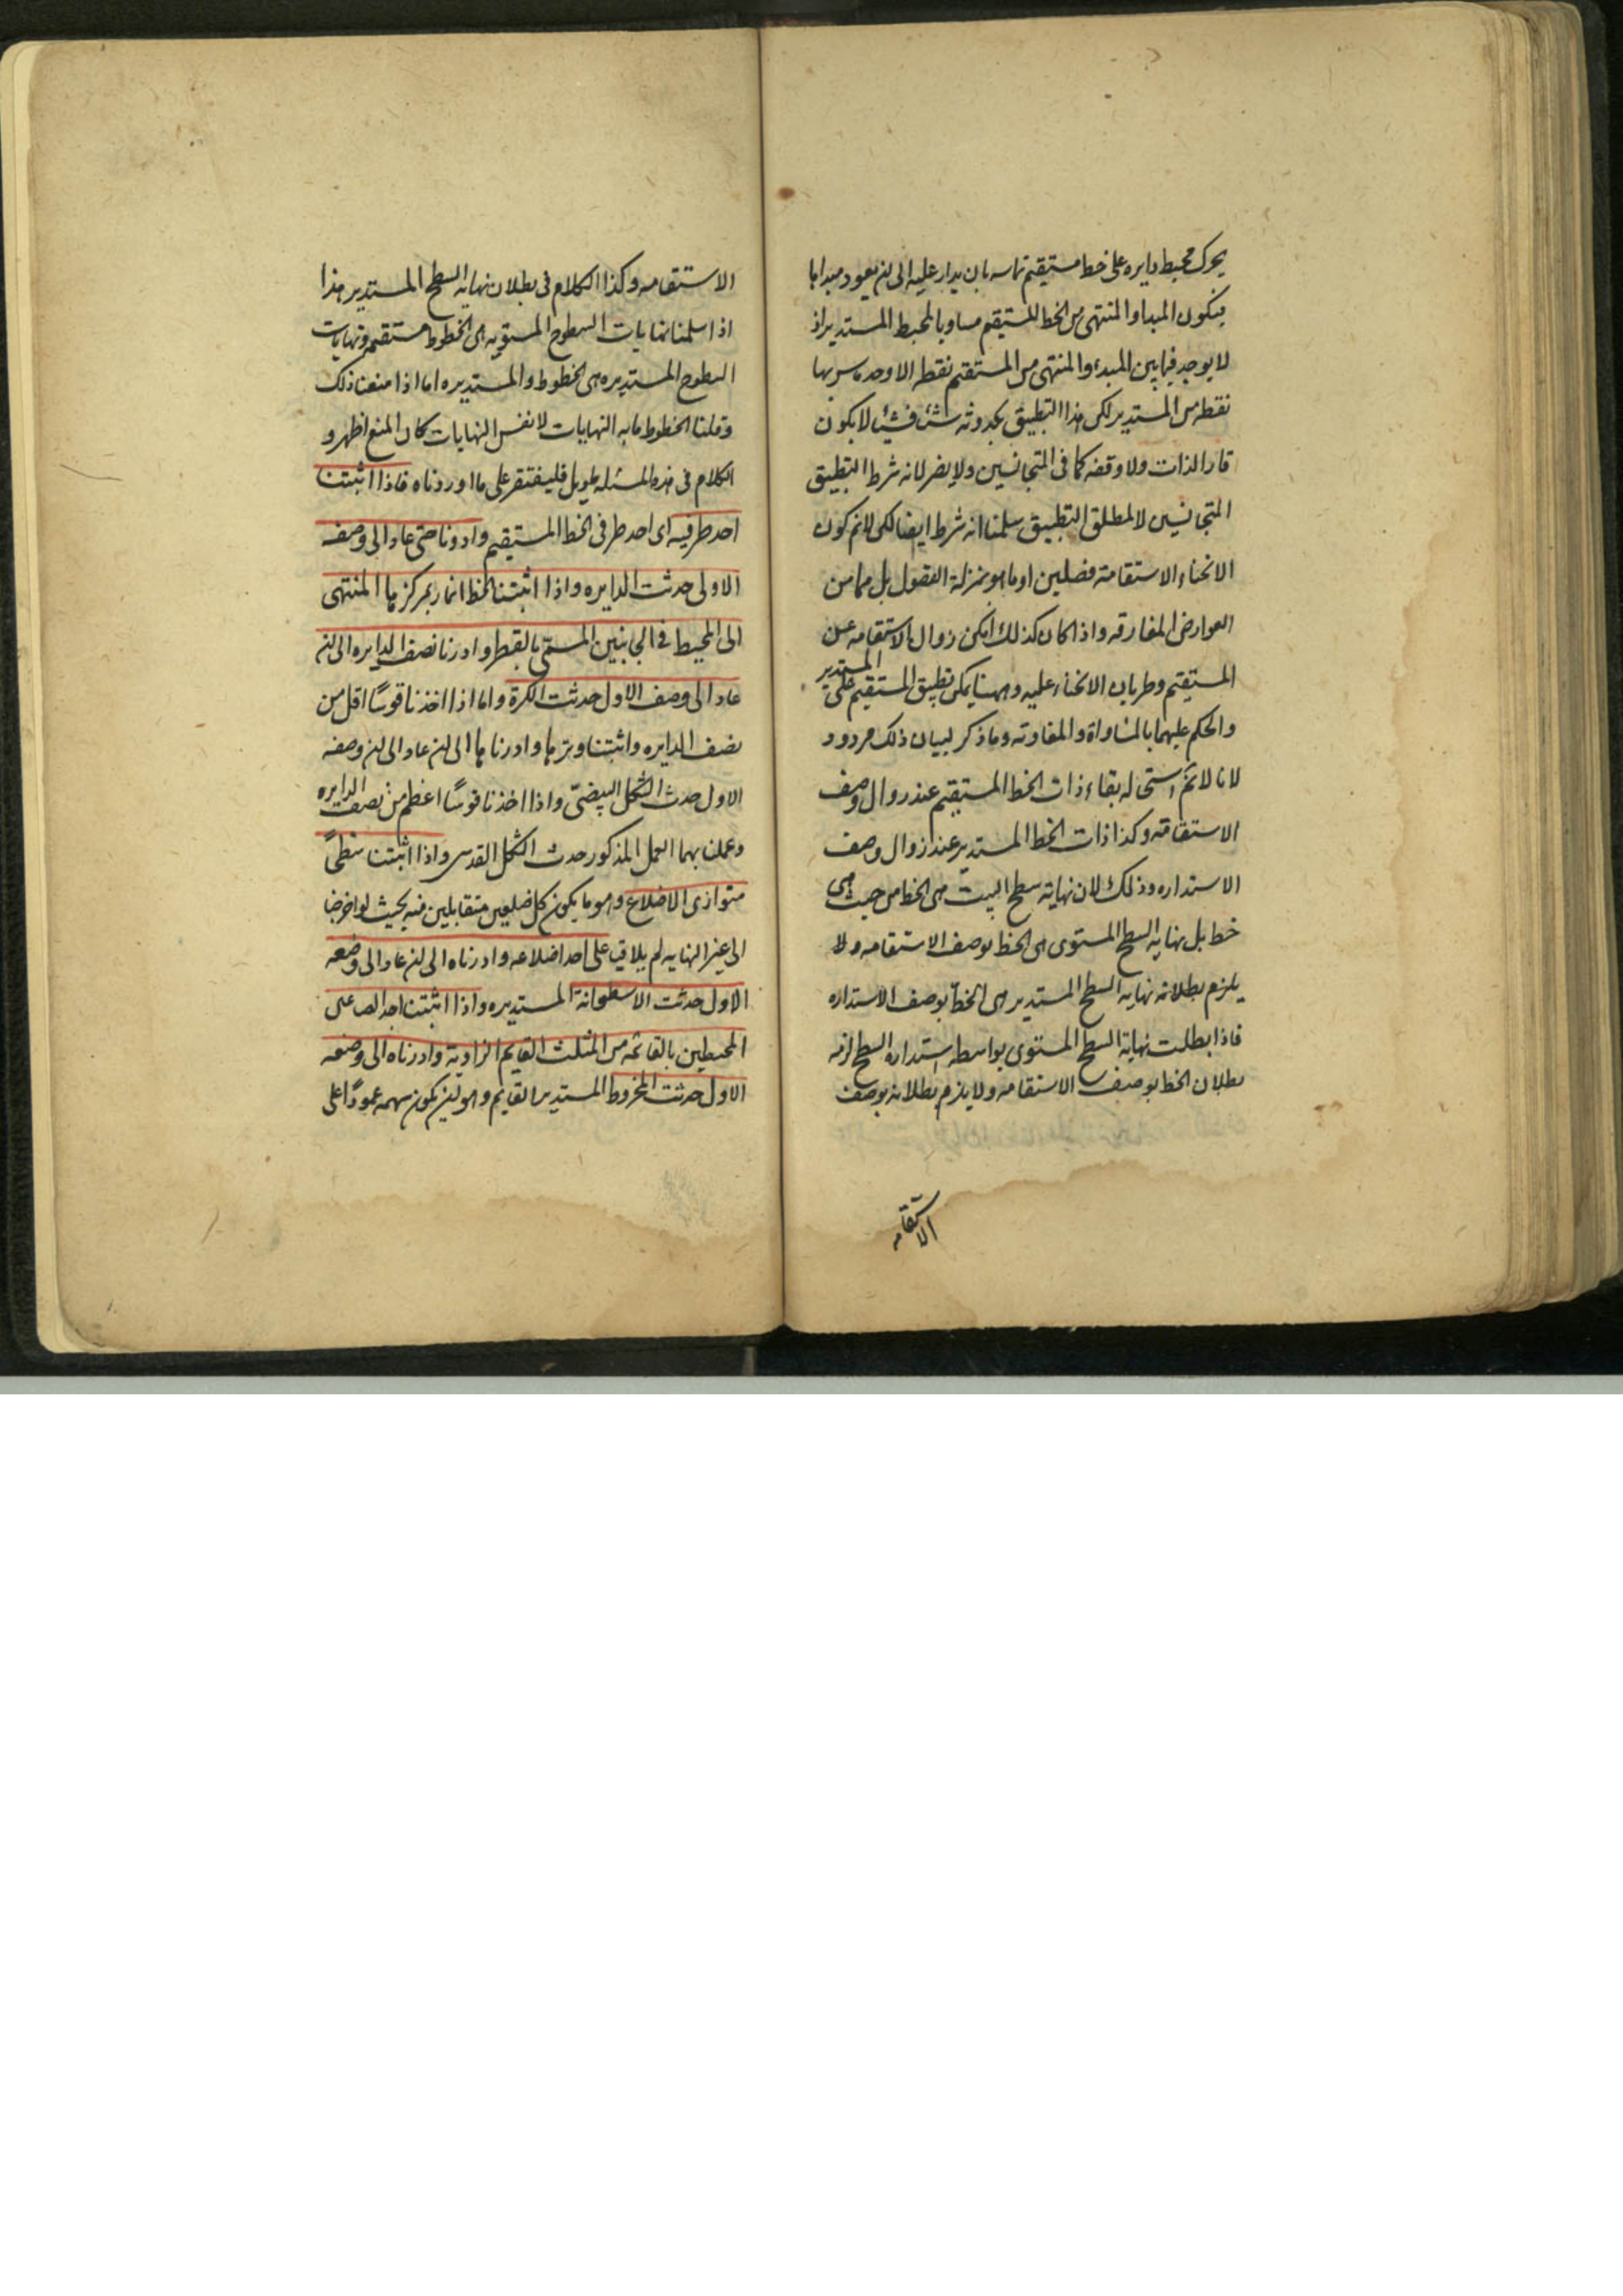 يحرك محيط دايره على خط مستقيم تماسه بان يدار عليه الى ان يعود مبداها
فيكون المبدا والمنتهى من الخط المستقيم مساويا لمحيط المستدير اذ
لا يوجد فيما بين المبدء والمنتهى من المستقيم نقطه الا وحد ماس بها
نقطه من المستدير لكن هذا التطبيق بحدوثه شئ فشيئا لا يكون
قار الذات ولا وقفه كما فى المتجانسين ولا يضر لانه شرط التطبيق
المتجانسين لا لمطلق التطبيق سلمنا انه شرط ايضا لكن لانم كون
الانحناء والاستقامة فصلين او ما هو بمنزلة الفصول بل هما من
العوارض المفارقه واذا كان كذلك امكن زوال الاستقامه عن
المستقيم وطريان الانحناء عليه وههنا يمكن تطبيق المستقيم على المستدير
والحكم عليهما بالمساواة والمفاوته وما ذكر لبيان ذلك مردود
لانا لا نم استحاله بقاء ذات الخط المستقيم عند زوال وصف
الاستقامة وكذا ذات الخط المستدير عند زوال وصف
الاستداره وذلك لان نهاية سطح ليست هى الخط من حيث هى
خط بل نهايه السطح المستوى هى الخط بوصف الاستقامه ولا
يلزم بطلانه نهايه السطح المستدير هى الخط بوصف الاستداره
فاذا بطلت نهاية السطح المستوى بواسطه استداره السطح لزم
بطلان الخط بوصف الاستقامه ولا يلزم بطلانه بوصف
الاستقامه
الاستقامه وكذا الكلام فى بطلان نهايه السطح المستدير هذا
اذا سلمنا نهايات السطوح المستويه هى الخطوط مستقيم ونهايات
السطوح المستديره هى الخطوط والمستديره اما اذا منعنا ذلك
وقلنا الخطوط ما به النهايات لا نفس النهايات كان المنع اظهر و
الكلام فى هذه المسئله طويل فليقتقر على ما اوردناه فاذا اثبتنا
احد طرفيه اى احد طرفى الخط المستقيم وادرنا حتى عاد الى وضعه
الاولى حدثت الدايره واذا اثبتنا الخط المار بمركزها المنتهى
الى المحيط فى الجانبين المسمى بالقطر وادرنا نصف الدايره الى ان
عاد الى وصف الاول حدثت الكرة واما اذا اخذنا قوسا اقل من
نصف الدايره واثبتنا وترها وادرناها الى ان عاد الى ان وصفه
الاول حدث الشكل البيضى واذا اخذنا قوسا اعظم من نصف الدايره
وعملنا بهما العمل المذكور حدث الشكل العدسى واذا اثبتنا سطحا
متوازى الاضلاع وهو ما يكون كل ضلعين متقابلين منه بحيث لو اخرجا
الى غير النهايه لم يلاقيا على احد اضلاعه وادرناه الى ان عاد الى وضعه
الاول حدثت الاسطوانة المستديره واذا اثبتنا احد الضلعى
المحيطين بالقائمه من المثلث القايم الزاوية وادرناه الى وضعه
الاول حدثت المخروط المستدير القايم وهو ان يكون سهمه عمودا على